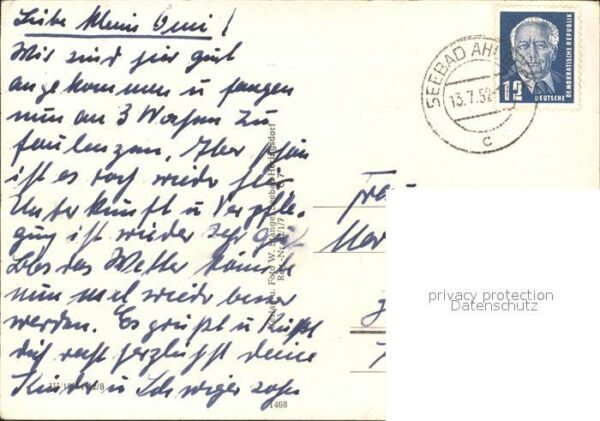 Liebe kleine Omi!
Wir sind hier gut
angekommen u fangen
nun an 3 Wochen zu
faulenzen. Aber schön
ist es doch wieder hier
Unterkunft u Verpfle-
gung ist wieder sehr gut
Bloß das Wetter könnte
nun mal wieder besser
werden. Es grüßt u küßt
dich recht herzlichst deine
Kinder u Schwiegersohn
SEEBAD AH
13.7.52
c
12
DEUTSCHE
DEMOKRATISCHE REPUBLIK
Foto W. Stange Seebad Heringsdorf
Frau
privacy protection
Datenschutz
1468